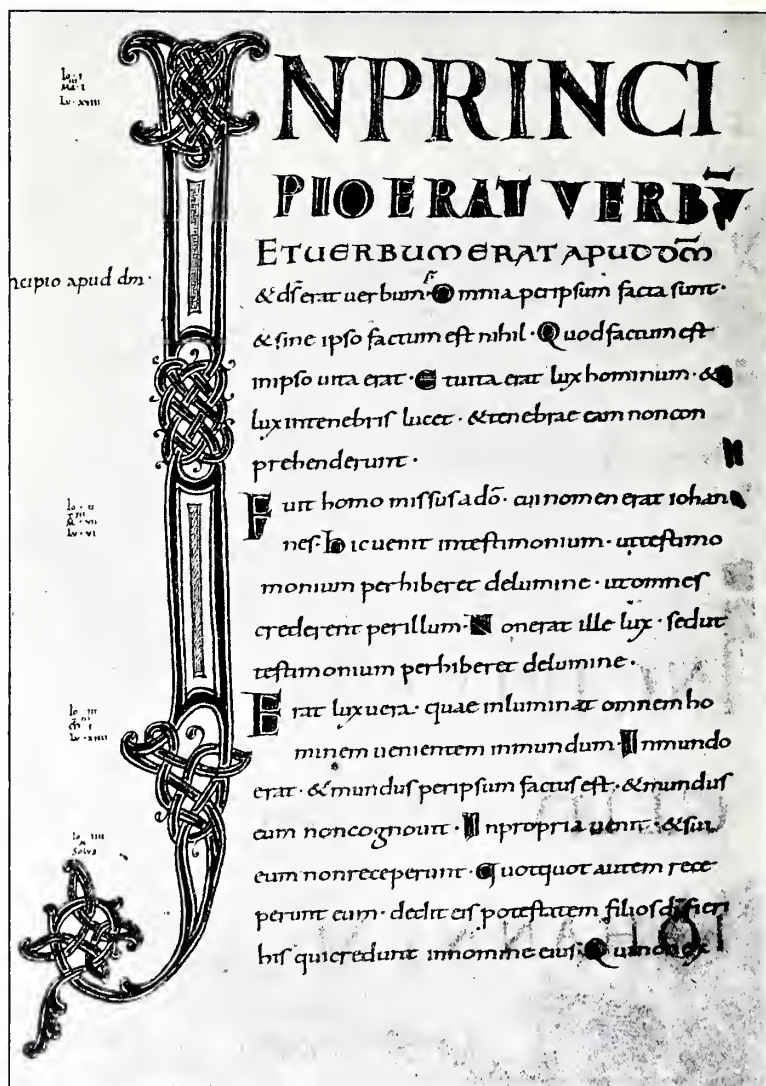 INPRINCI
PIO ERAT VERBŪ
ETUERBUM ERAT APUD DM̄
ncipio apud dm̄·
& dſ erat uerbum· Omnia peripſum facta ſunt·
& ſine ipſo factum eſt nihil· Quod factum eſt
inipſo uita erat· Et uita erat lux hominum· &
lux intenebriſ lucet· & tenebrae eam noncon
prehenderunt·
Fuit homo miſſuſ adō· cui nomen erat iohan
neſ· hic uenit inteſtimonium· utteſtimo
monium perhiberet delumine· utomneſ
crederent perillum· Nonerat ille lux· ſedut
teſtimonium perhiberet delumine·
Erat lux uera· quae inluminat omnem ho
minem uenientem inmundum· Inmundo
erat· & munduſ peripſum factuſ eſt· & munduſ
eum noncognouit· Inpropria uenit· & ſui
eum nonreceperunt· Quotquot autem rece
perunt eum· dedit eiſ poteſtatem filioſ dī fieri
hiſ quicredunt innomine eiuſ· Qui non ex
Io · I
Ma · I
Lv · XIIII
Io · II
Lv · VI
Io · III
Lv · XIIII
Io · IIII
Solvs